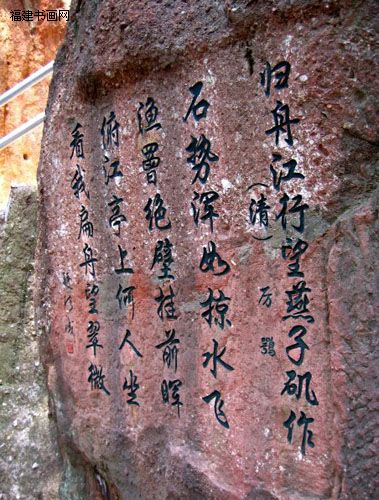 福建书画网
归舟江行望燕子矶作
（清）厉鹗
石势浑如掠水飞
渔罾绝壁挂前晖
俯江亭上何人坐
看我扁舟望翠微